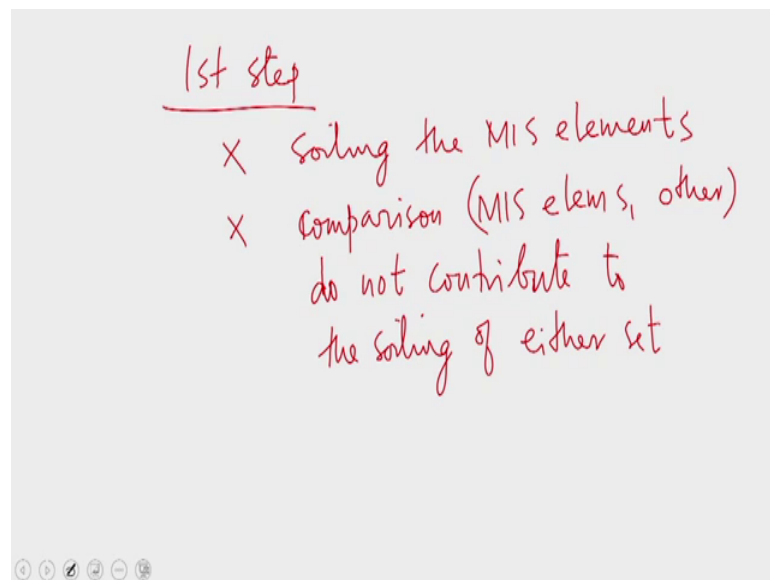 1st step
x soiling the MIS elements
x comparison (MIS elems, other)
do not contribute to
the soiling of either set